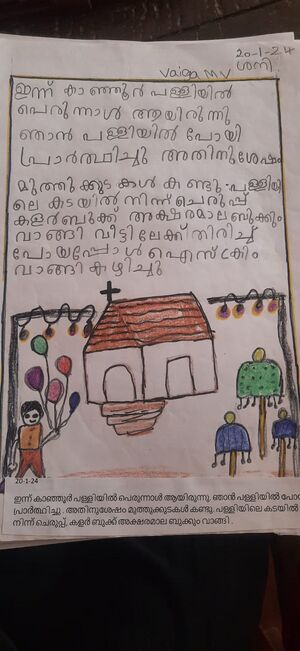 Vaiga M V
20-1-24
ശനി
ഇന്ന് കാഞ്ഞൂർ പള്ളിയിൽ
പെരുന്നാൾ ആയിരുന്നു
ഞാൻ പള്ളിയിൽ പോയി
പ്രാർത്ഥിച്ചു അതിനുശേഷം
മുത്തുക്കുടകൾ കണ്ടു പള്ളിയി
ലെ കടയിൽ നിന്ന് ചെരുപ്പ്
കളർബുക്ക് അക്ഷരമാല ബുക്കും
വാങ്ങി വീട്ടിലേക്ക് തിരിച്ച്
പോയപ്പോൾ ഐസ്ക്രീം
വാങ്ങി കഴിച്ചു
20-1-24
ഇന്ന് കാഞ്ഞൂർ പള്ളിയിൽ പെരുന്നാൾ ആയിരുന്നു. ഞാൻ പള്ളിയിൽ പോയ
പ്രാർത്ഥിച്ചു . അതിനുശേഷം മുത്തുക്കുടകൾ കണ്ടു. പള്ളിയിലെ കടയിൽ
നിന്ന് ചെരുപ്പ്, കളർ ബുക്ക് അക്ഷരമാല ബുക്കും വാങ്ങി .